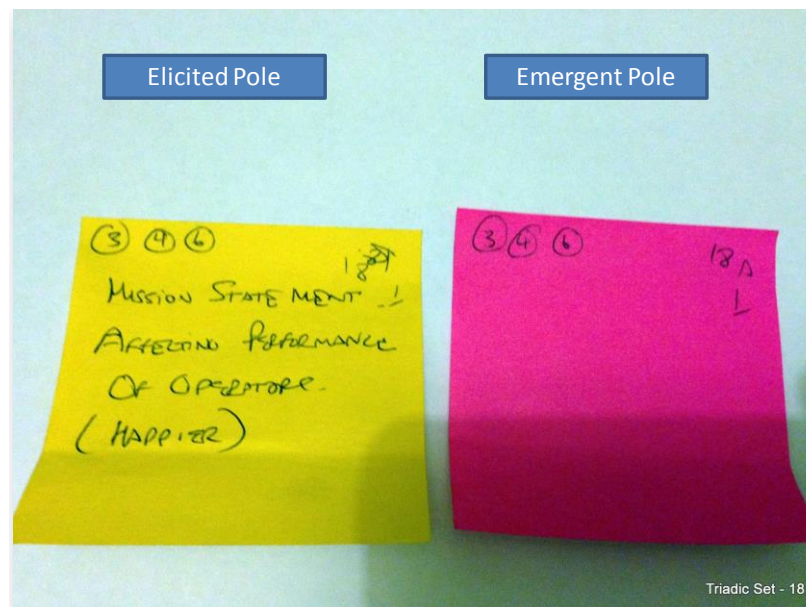 Elicited Pole
Emergent Pole
3 4 6
18
MISSION STATEMENT 1
AFFECTING PERFORMANCE
OF OPERATORS.
(HAPPIER)
3 4 6
18 A
1
Triadic Set - 18